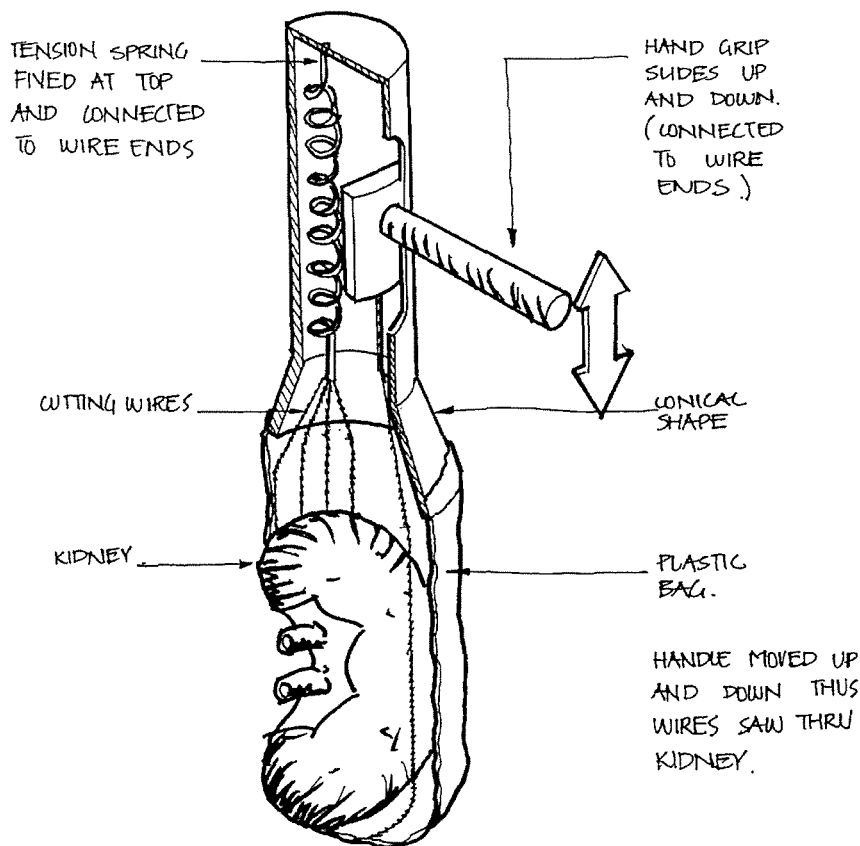 TENSION SPRING
FIVED AT TOP
AND CONNECTED
TO WIRE ENDS
HAND GRIP
SLIDES UP
AND DOWN.
(CONNECTED
TO WIRE
ENDS.)
CUTTING WIRES
CONICAL
SHAPE
KIDNEY
PLASTIC
BAG.
HANDLE MOVED UP
AND DOWN THUS
WIRES SAW THRU
KIDNEY.